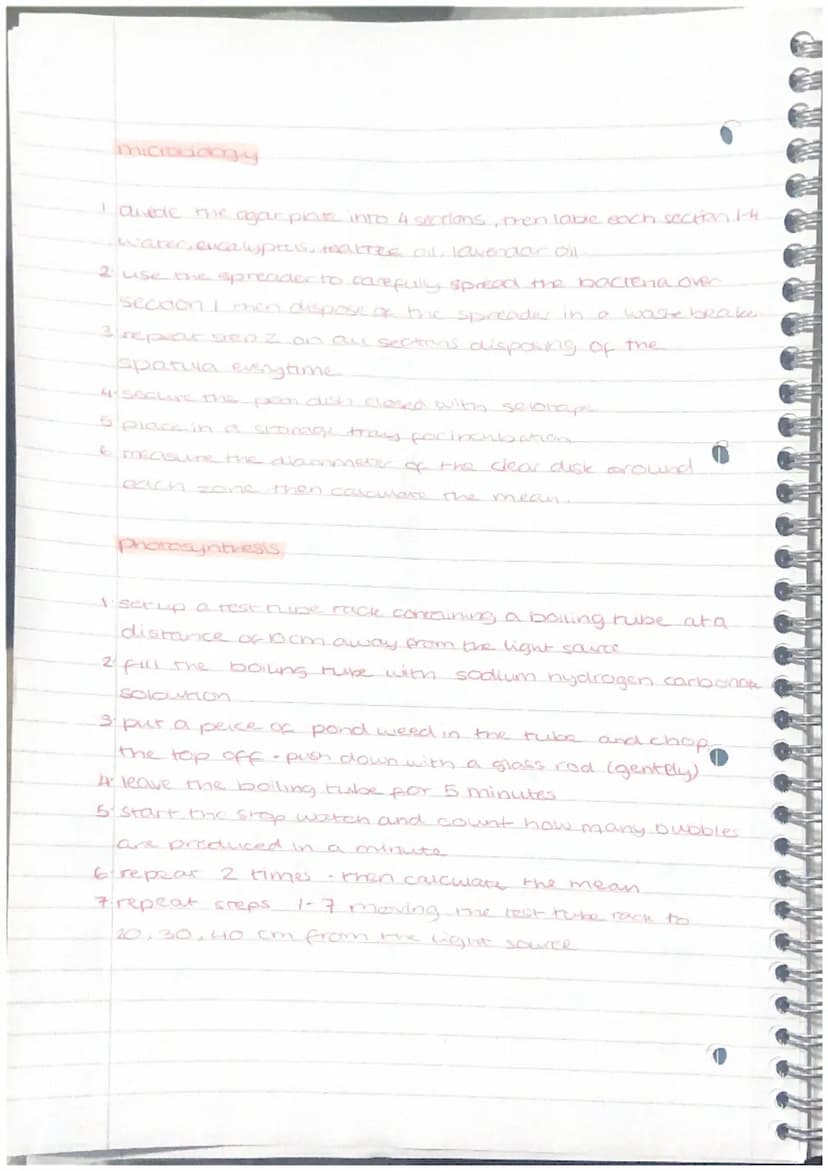 microbiology
1 divide the agar plate into 4 sections, then lable each section 1-4
water, eucalyptus, teatree oil, lavendar oil
2 use the spreader to carefully spread the bacteria over
section 1 then dispose of the spreader in a waste beaker
3 repeat step 2 on all sections disposing of the
spatula everytime
4 secure the petri dish closed with
5 place in a storage tray for incubation
6 measure the diammeter of the clear disk around
each zone then calculate the mean.
photosynthesis
1 set up a test tube rack containing a boiling tube at a
distance of 10cm away from the light source
2 fill the boiling tube with sodium hydrogen carbonate
solution
3 put a peice of pond weed in the tube and chop
the top off - push down with a glass rod (gently)
4 leave the boiling tube for 5 minutes
5 start the stop watch and count how many bubbles
are produced in a minute
6 repeat 2 times - then calculate the mean
7 repeat steps 1-7 moving the test tube rack to
20, 30, 40 cm from the light source